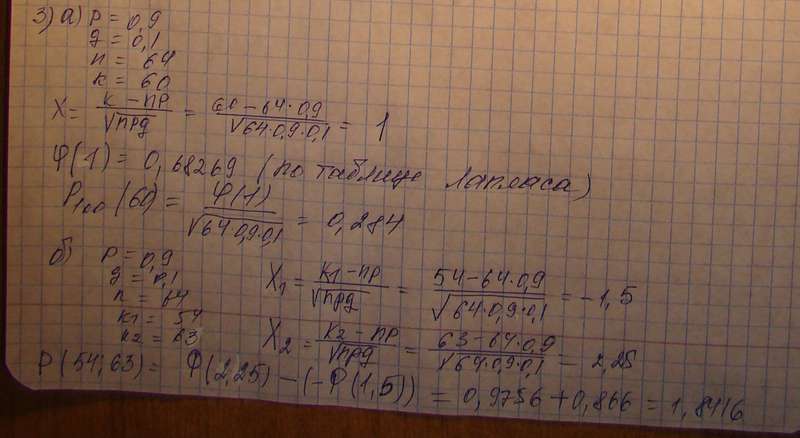 3) а) P = 0,9
q = 0,1
n = 64
k = 60
X = (k - np)/√npq = (60 - 64·0,9)/√64·0,9·0,1 = 1
φ(1) = 0,68269 (по таблице Лапласа)
P100(60) = φ(1)/√64·0,9·0,1 = 0,284
б) P = 0,9
q = 0,1
n = 64
k1 = 54
k2 = 63
X1 = (k1 - np)/√npq = (54 - 64·0,9)/√64·0,9·0,1 = -1,5
X2 = (k2 - np)/√npq = (63 - 64·0,9)/√64·0,9·0,1 = 2,25
P(54;63) = Φ(2,25) - (-Φ(1,5)) = 0,9756 + 0,866 = 1,8416